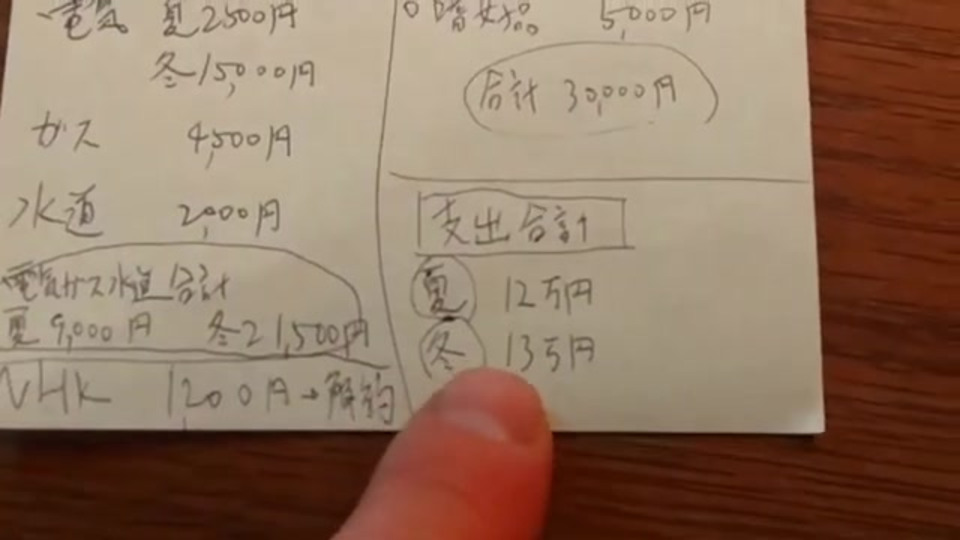 電気 夏2500円
冬15,000円
ガス 4,500円
水道 2,000円
電気ガス水道合計
夏9,000円 冬21,500円
NHK 1,200円→解約
嗜好品 5,000円
合計 30,000円
支出合計
夏 12万円
冬 13万円